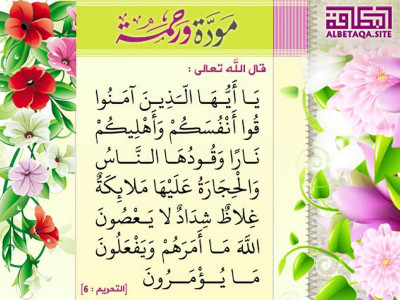 البطاقة
ALBETAQA.SITE
مودة ورحمة
قال الله تعالى :
يَا أَيُّهَا الَّذِينَ آمَنُوا
قُوا أَنْفُسَكُمْ وَأَهْلِيكُمْ
نَارًا وَقُودُهَا النَّاسُ
وَالْحِجَارَةُ عَلَيْهَا مَلَائِكَةٌ
غِلَاظٌ شِدَادٌ لَا يَعْصُونَ
اللَّهَ مَا أَمَرَهُمْ وَيَفْعَلُونَ
مَا يُؤْمَرُونَ
[التحريم : 6]